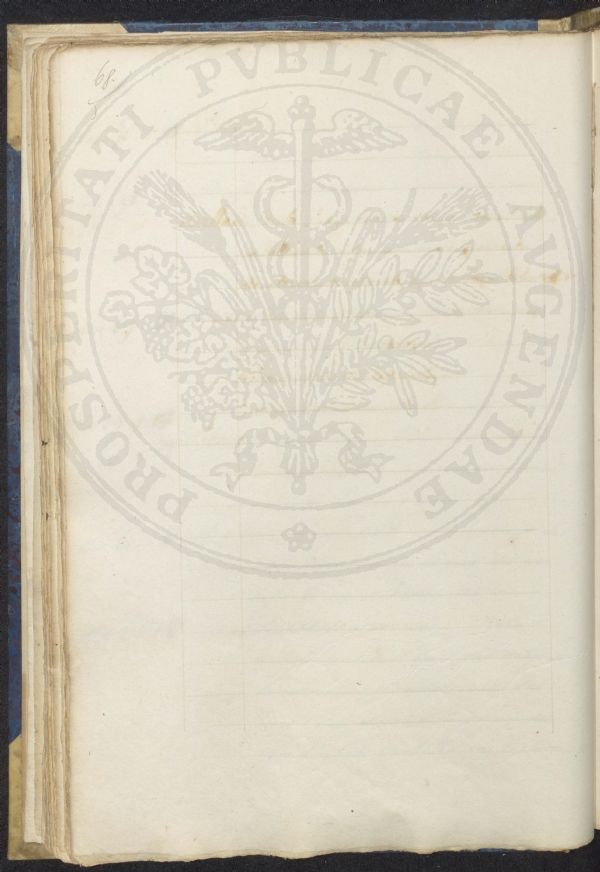 68.
PROSPERITATI PVBLICAE AVGENDAE